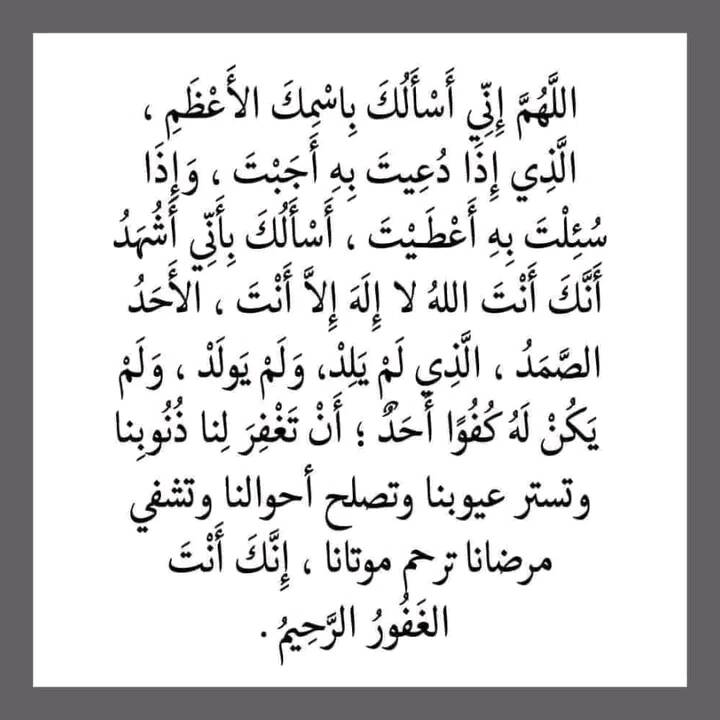 اللَّهُمَّ إِنِّي أَسْأَلُكَ بِاسْمِكَ الأَعْظَمِ ،
الَّذِي إِذَا دُعِيتَ بِهِ أَجَبْتَ ، وَإِذَا
سُئِلْتَ بِهِ أَعْطَـيْتَ ، أَسْأَلُكَ بِأَنِّي أَشُهَدُ
أَنَّكَ أَنْتَ اللهُ لا إِلَهَ إِلاَّ أَنْتَ ، الأَحَدُ
الصَّمَدُ ، الَّذِي لَمْ يَلِدْ، وَلَمْ يَولَدْ ، وَلَمْ
يَكُنْ لَهُ كُفُوًا أَحَدٌ ؛ أَنْ تَغْفِرَ لِنا ذُنُوبِنا
وتستر عيوبنا وتصلح أحوالنا وتشفي
مرضانا ترحم موتانا ، إِنَّكَ أَنْتَ
الغَفُورُ الرَّحِيمُ .